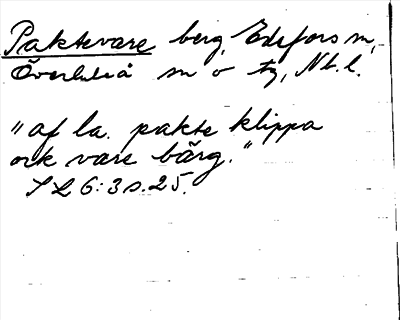 Paktevare berg, Edefors sn,
Överluleå sn o tg, Nb. l.
"af la. pakte klippa
ock vare bärg."
SL 6:3 s. 25.